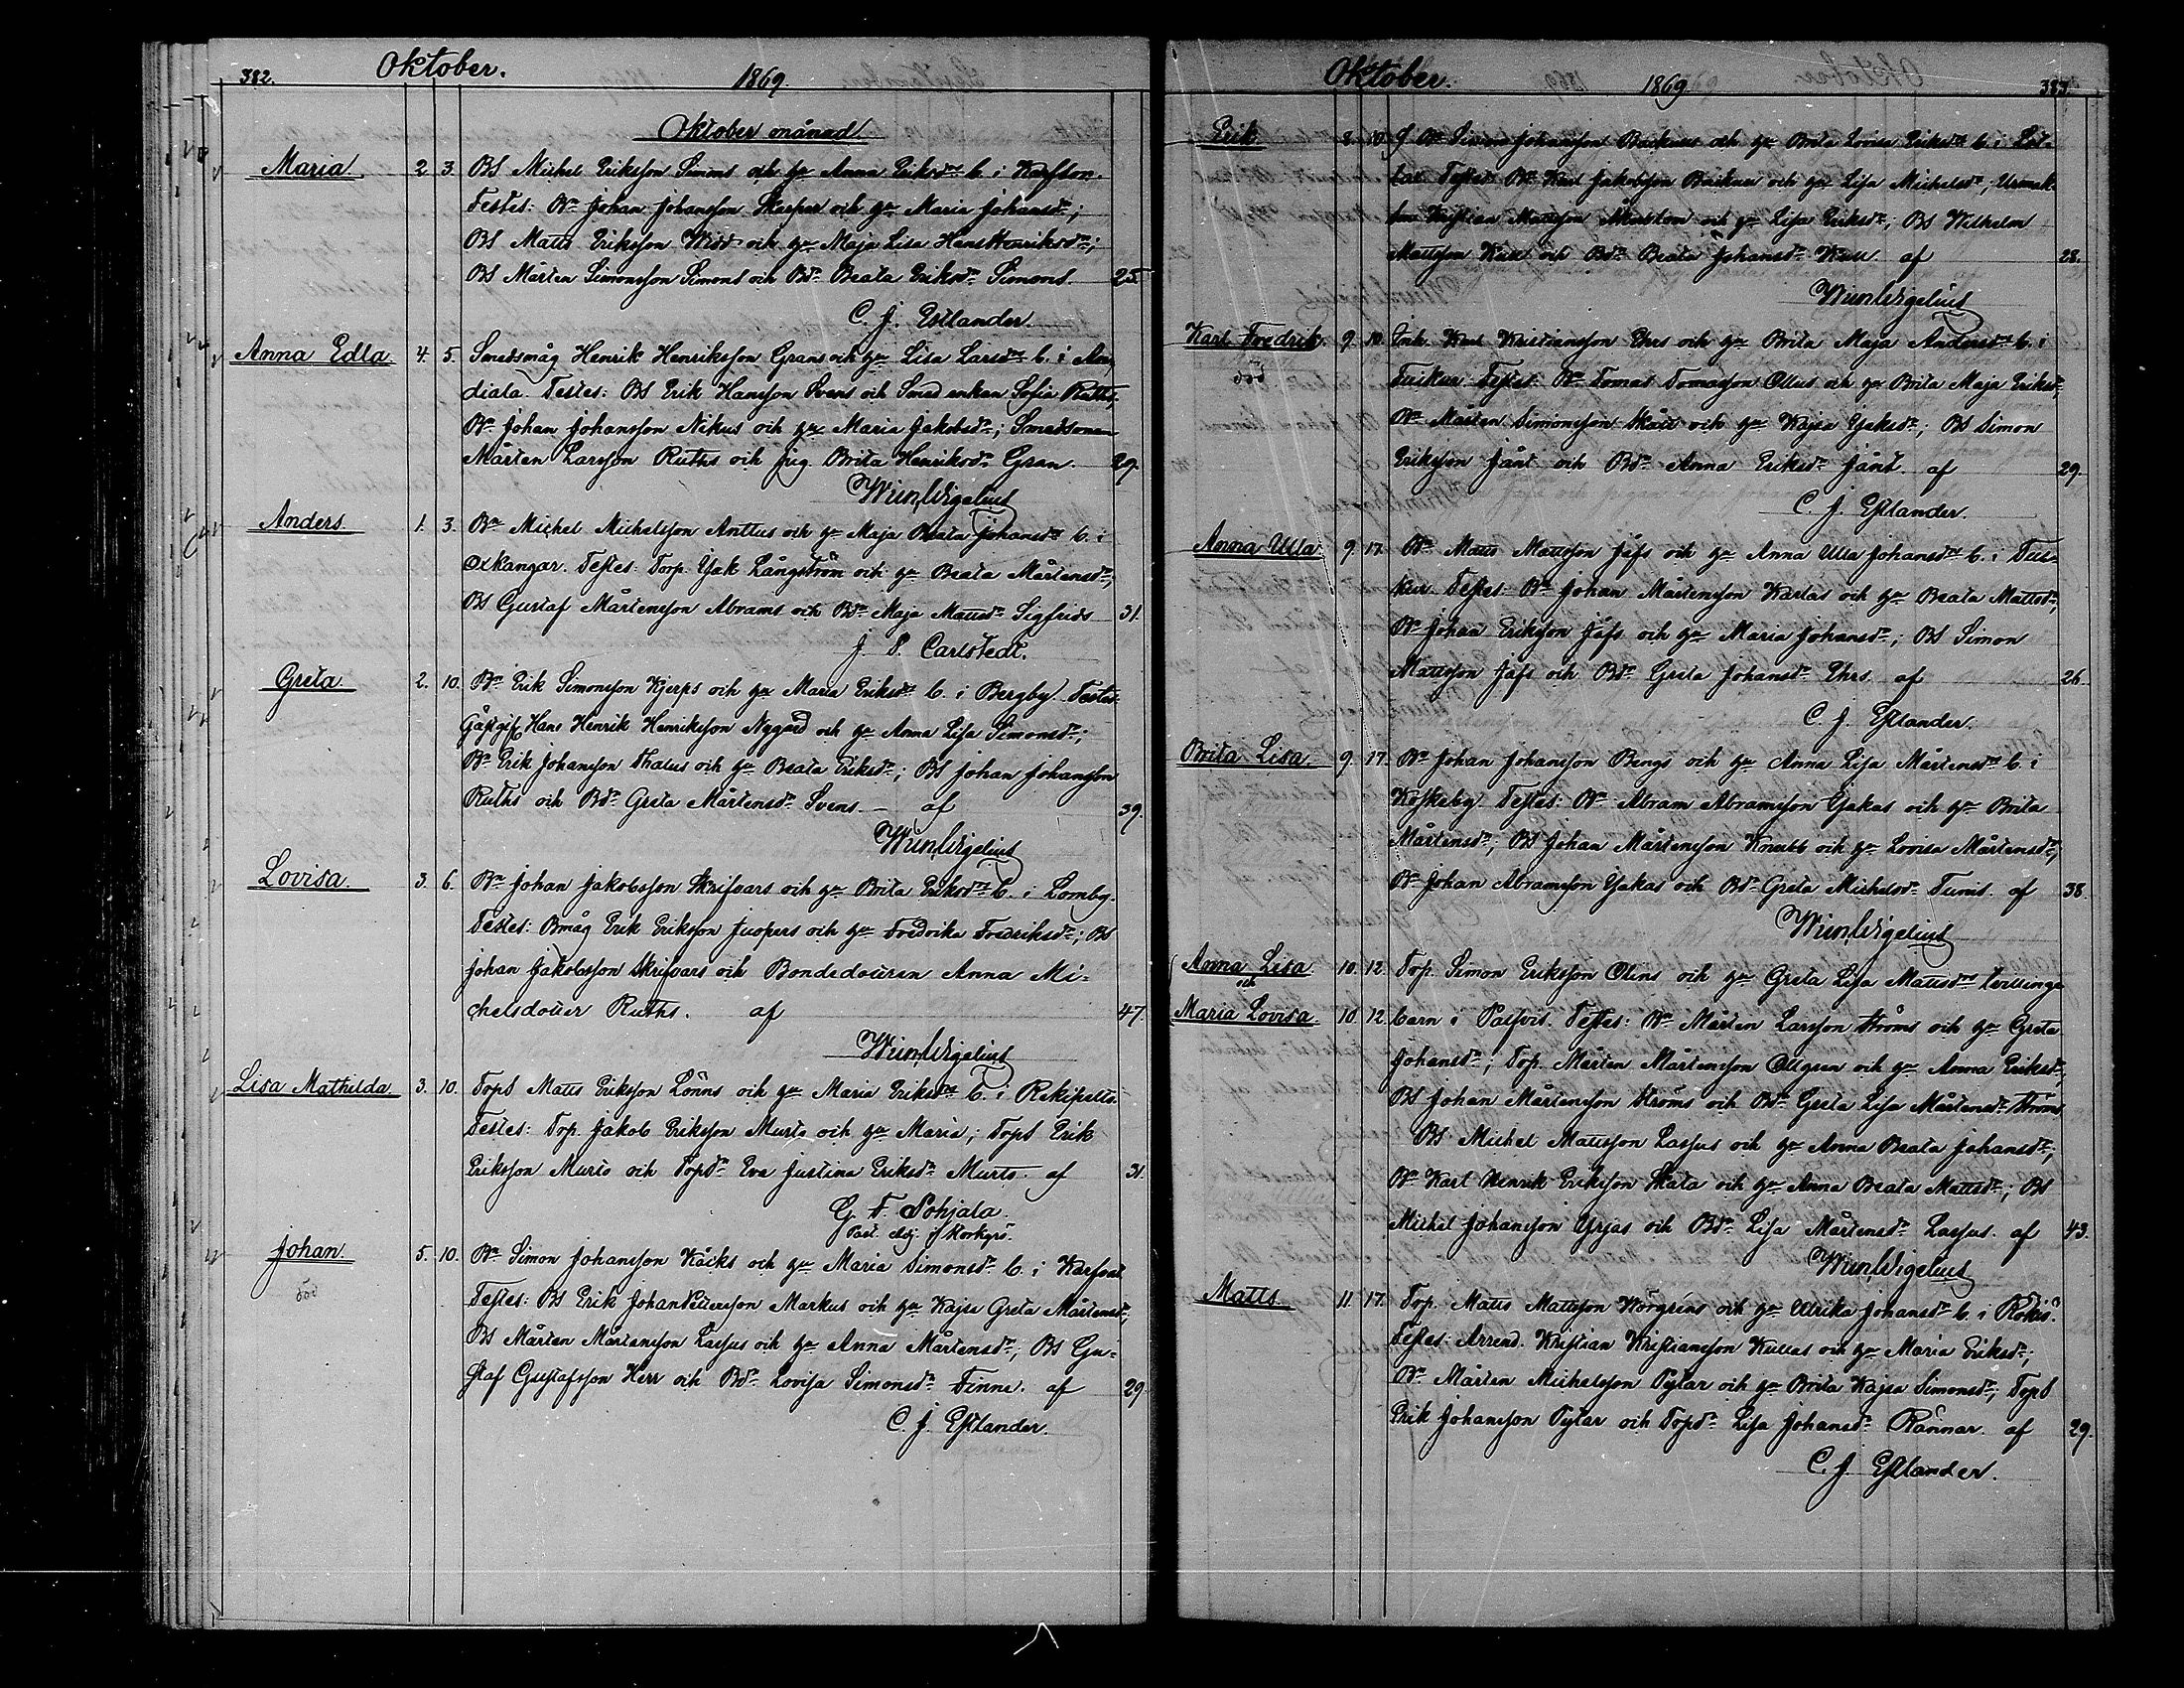 382. Oktober. 1869.
Oktober månad.
Maria 2 3. BS Michel Eriksson Simons och hu Anna Eriksdr b. i Karfsor.
Testes: Bn Johan Johansson Skarpar och hu Maria Johansdr;
BS Matts Eriksson Widd och hu Maja Lisa Hans Henriksdr;
BS Mårten Simonsson Simons och Bdr Beata Eriksdr Simons. 25
C. J. Estlander.
Anna Edla. 4. 5. Smedsmåg Henrik Henriksson Grans och hu Lisa Larsdr b. i An-
diala. Testes: BS Erik Hansson Svens och Smed enkan Sofia Ruths,
Bn Johan Johansson Nikus och hu Maria Jakobsdr; Smedsonen
Mårten Larsson Ruths och pig. Brita Henriksdr Gran. 29.
Wim. Wigelius
Anders 1. 3. Bn Michel Michelsson Anttus och hu Maja Beata Johansdr b. i
Oxkangar. Testes: Torp. Isak Långström och hu Beata Mårtensdr,
BS Gustaf Mårtensson Abrams och Bdr Maja Mattsdr Sigfrids 31.
J. S. Carlstedt.
Greta 2. 10. Bn Erik Simonsson Kjerps och hu Maria Eriksdr b. i Bergby. Testes
Gästgifv Hans Henrik Henriksson Nygård och hu Anna Lisa Simonsdr;
Bn Erik Johansson Thalus och hu Beata Eriksdr; BS Johan Johansson
Ruths och Bdr Greta Mårtensdr Svens. — af 39.
Wim. Wigelius
Lovisa. 3. 6. Bn Johan Jakobsson Skrifvars och hu Brita Eriksdr b. i Lomby.
Testes: Bmåg Erik Eriksson Juopers och hu Fredrika Fredriksdr; BS
Johan Jakobsson Skrifvars och Bondedottren Anna Mi-
chelsdotter Ruths. af 47.
Wim. Wigelius
Lisa Mathilda. 3. 10. TopS Matts Eriksson Lönns och hu Maria Eriksdr b. i Rekipelto.
Testes: Top. Jakob Eriksson Murto och hu Maria; TopS Erik
Eriksson Murto och Topdr Eva Justina Eriksdr Murto af 31.
G. F. Pohjala.
Past. Adj. i Kortesjärvi
Johan. 5. 10. Bn Simon Johansson Kåcks och hu Maria Simonsdr b. i Karfsor
död
Testes: BS Erik Johan Pettersson Markus och hu Kajsa Greta Mårtensdr,
BS Mårten Mårtensson Lassus och hu Anna Mårtensdr; BS Gu-
staf Gustafsson Herr och Bdr Lovisa Simonsdr Finne. af 29
C. J. Estlander.
Oktober. 1869. 383.
Erik 8. 10. Bn Simon Johansson Backus och hu Brita Lovisa Eriksdr b. i Löt-
lax. Testes: Bn Karl Jakobsson Backus och hu Lisa Michelsdr; Urmak.
Kristian Mattsson och hu Lisa Eriksdr; BS Wilhelm
Mattsson Kull och Bdr Beata Johansdr Kull. af 28.
Wim. Wigelius
Karl Fredrik. 9. 10. Inh. Karl Kristiansson Ehrs och hu Brita Maja Andersdr b. i
död
Tuskur Testes: Bn Tomas Tomasson Ollus och hu Brita Maja Eriksdr,
Bn Mårten Simonsson Skått och hu Kajsa Isaksdr; BS Simon
Eriksson Jånt och Bdr Anna Eriksdr Jånt. af 29.
C. J. Estlander.
Anna Ulla. 9. 17. Bn Matts Mattsson Jåfs och hu Anna Ulla Johansdr b. i Tus-
kur. Testes: Bn Johan Mårtensson Karlas och hu Beata Mattsdr,
Bn Johan Eriksson Jåfs och hu Maria Johansdr; BS Simon
Mattsson Jåfs och Bdr Greta Johansdr Ehrs. af 26.
C. J. Estlander.
Brita Lisa. 9. 17. Bn Johan Johansson Bengs och hu Anna Lisa Mårtensdr b. i
Koskeby. Testes: Bn Abram Abramsson Isakas och hu Brita
Mårtensdr; BS Johan Mårtensson Knubb och hu Lovisa Mårtensdr,
Bn Johan Abramsson Isakas och Bdr Greta Michelsdr Tunis. af 38.
Wim. Wigelius
Anna Lisa 10. 12. Top. Simon Eriksson Olins och hu Greta Lisa Mattsdr tvillinge
och
Maria Lovisa. 10. 12. barn i Palfvis. Testes: Bn Mårten Larsson Ströms och hu Greta
Johansdr; Top. Mårten Mårtensson Ollgren och hu Anna Eriksdr,
BS Johan Mårtensson Ströms och Bdr Greta Lisa Mårtensdr Ströms
BS Michel Mattsson Lassus och hu Anna Beata Johansdr;
Bn Karl Henrik Eriksson Skata och hu Anna Beata Mattsdr; BS
Michel Johansson Yrjas och Bdr Lisa Mårtensdr Lassus. af 43.
Wim. Wigelius
Matts 11. 17. Top. Matts Mattsson Norgréns och hu Ulrika Johansdr b. i Rökiö.
Testes: Arrend. Kristian Kristiansson Kullas och hu Maria Eriksdr;
Bn Mårten Michelsson Pytar och hu Brita Kajsa Simonsdr; TopS
Erik Johansson Pytar och Topdr Lisa Johansdr Rännar. af 29.
C. J. Estlander.